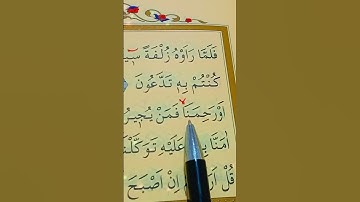 فَلَمَّا رَاَوْهُ زُلْفَةً
كُنْتُمْ بِهٖ تَدَّعُونَ
اَوْ رَحِمَنَا فَمَنْ يُجٖيرُ
اٰمَنَّا بِهٖ عَلَيْهِ تَوَكَّلْنَا
قُلْ اِنْ اَصْبَحَ